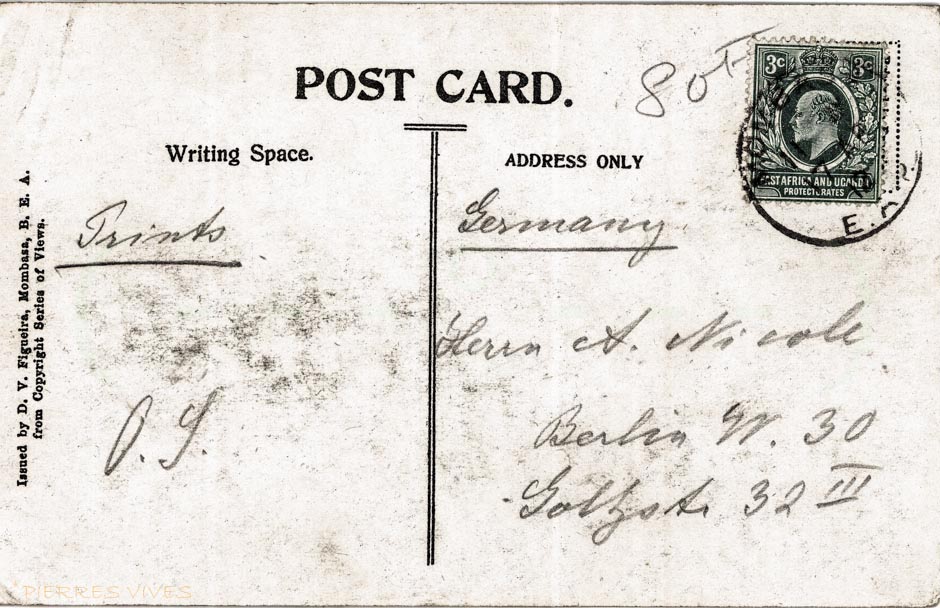 POST CARD.
80
3c 3c
EAST AFRICA AND UGANDA
PROTECTORATES
E. A.
Writing Space.
ADDRESS ONLY
Prints
Germany
Herrn A. Nicole
Berlin W. 30
Goltzstr. 32 III
Issued by D. V. Figueira, Mombasa, B. E. A.
from Copyright Series of Views.
PIERRES VIVES